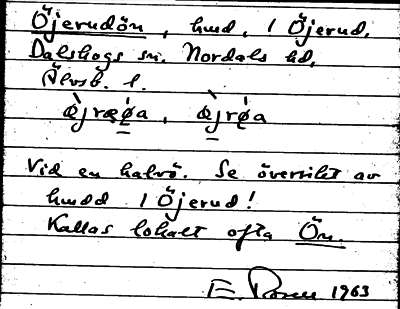 Öjerudön, hmd, 1 Öjerud,
Dalskogs sn. Nordals hd,
Älvsb. l.
Vid en halvö. Se översikt av
hmdd 1 Öjerud!
Kallas lokalt ofta Ön.
E. 1963